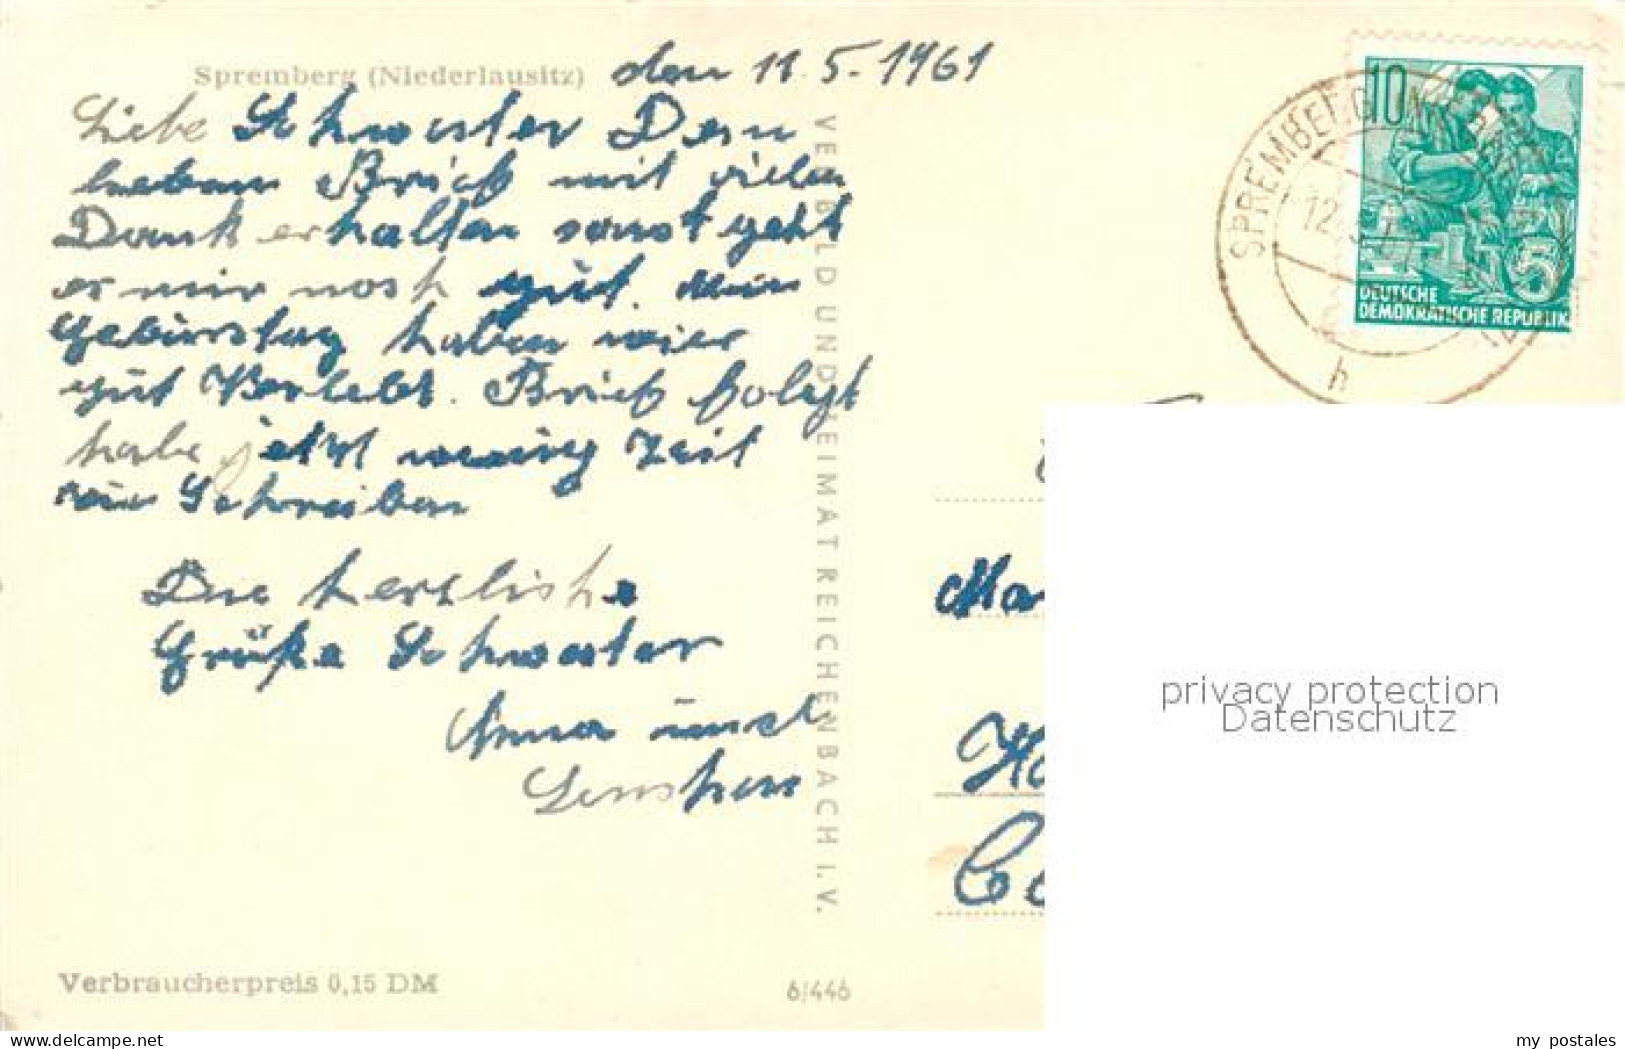 Spremberg (Niederlausitz) den 11.5.1961
Liebe Schwester Dein
lieben Brief mit vielen
Dank erhalten sonst geht
es mir noch gut. Mein
Gebürstag haben wier
güt Verlebt. Brief folgt
habe jetzt wenig Zeit
zu Schreiben
Die herzliche
Grüße Schwester
Anna und
Lenchen
VERBILD UND HEIMAT REICHENBACH I.V.
Verbraucherpreis 0,15 DM
6/446
10
5
DEUTSCHE
DEMOKRATISCHE REPUBLIK
SPREMBERG
12.5.61
h
Ma
Ha
Co
privacy protection
Datenschutz
www.ansichtskartenversand.com
my_postales